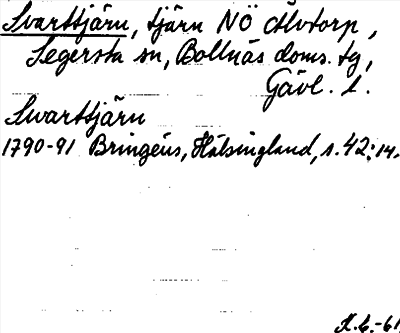 Svarttjärn, tjärn NÖ Älvtorp,
Segersta sn, Bollnäs doms. tg,
Gävl. l.
Swarttjärn
1790-91 Bringéus, Hälsingland, s. 42:14.
K.G.-61.